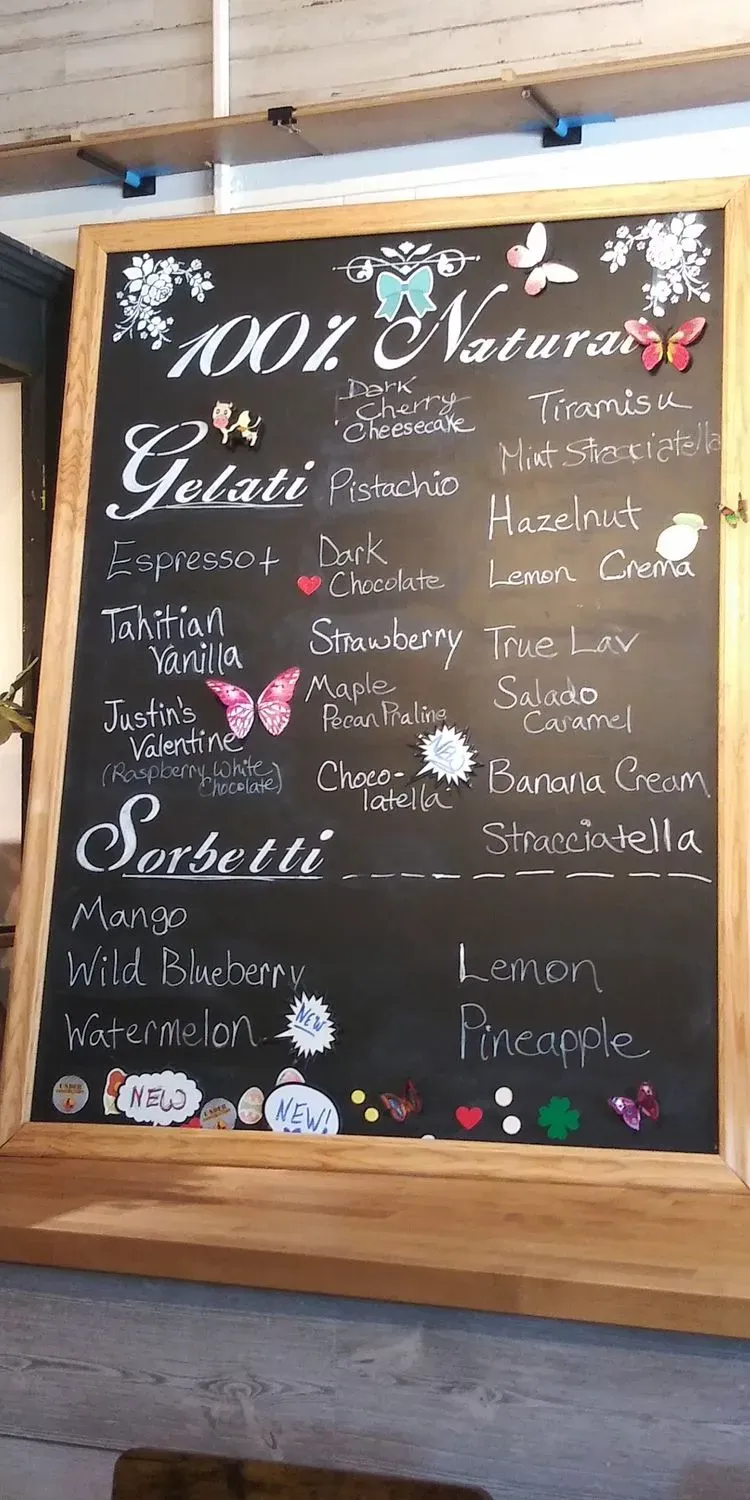 100% Natural
Gelati
Espresso+
Tahitian
Vanilla
Justin's
Valentine
(Raspberry White
Chocolate)
Dark
Cherry
Cheesecake
Pistachio
Dark
Chocolate
Strawberry
Maple
Pecan Praline
Choco-
latella
Tiramisu
Mint Stracciatella
Hazelnut
Lemon Crema
True Lav
Salado
Caramel
Banana Cream
Stracciatella
Sorbetti
Mango
Wild Blueberry
Watermelon
NEW
Lemon
Pineapple
NEW
NEW!